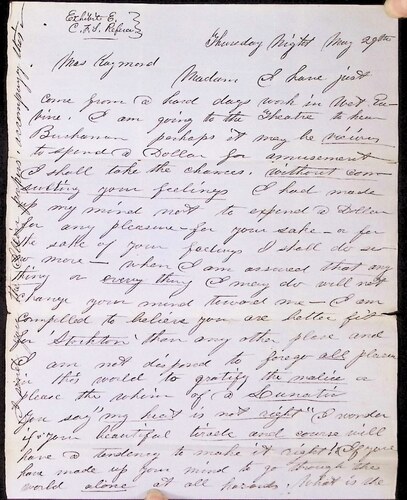 Exhibit E.
C.F.S. Referee
Thursday Night May 29th
Mrs Raymond
Madam I have just
come from a hard days work in
I am going to the Theatre to hear
Buchanan perhaps it may be vicious
to spend a Dollar for amusement
I shall take the chances. without con-
sulting your feelings I had made
up my mind not to expend a Dollar
for any pleasure - for your sake - or for
the sake of your feelings I shall do so
no more - when I am assured that any
thing or every thing I may do will not
change your mind toward me - I am
compelled to believe you are better fit
for Stockton than any other place and
I am not disposed to forego all pleasure
in this world to gratify the malice or
please the whim of a Lunatic
You say "my heart is not right" I wonder
if your beautiful tirade and course will
have a tendency to make it right? If you
have made up your mind to go through this
world alone at all hazards. What is the